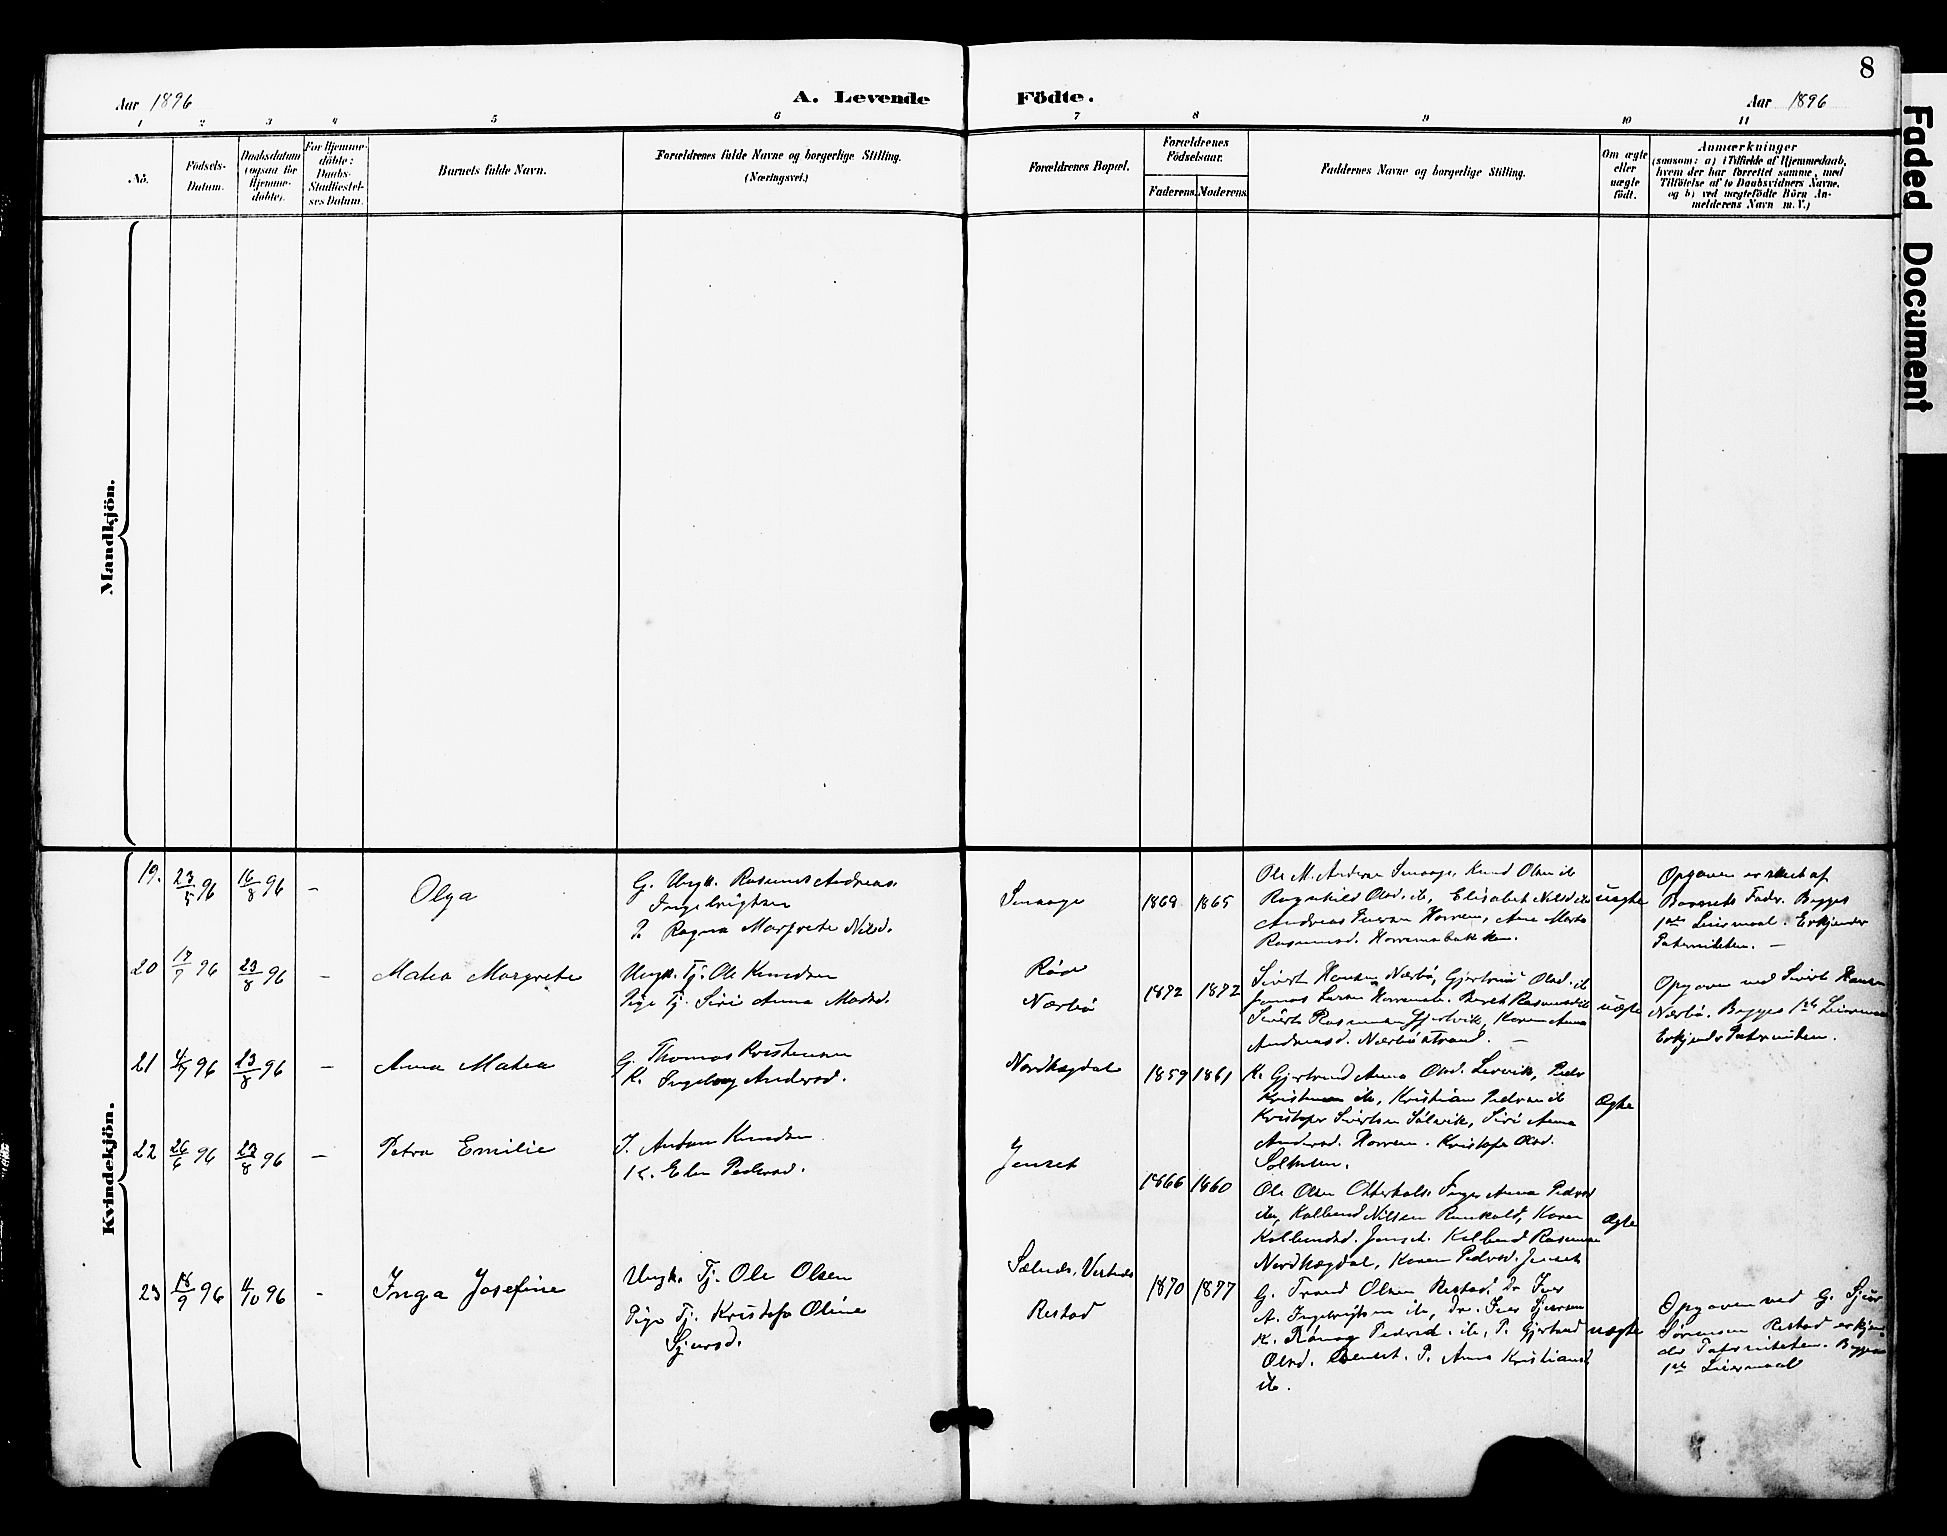 8
Aar 1896
A. Levende Födte.
Aar 1896
1 2 3 4 5 6 7 8 9 10 11
No.
Födsels-Datum.
Daabsdatum (ogsaa for Hjemme-döbte).
For Hjemme-döbte: Daabs-Stadfæstel-ses Datum.
Barnets fulde Navn.
Forældrenes fulde Navne og borgerlige Stilling.
(Næringsvei.)
Forældrenes Bopæl.
Forældrenes Födselsaar.
Faderens. Moderens.
Faddernes Navne og borgerlige Stilling.
Om ægte eller uægte födt.
Anmærkninger
(saasom: a) i Tilfælde af Hjemmedaab,
hvem der har forrettet samme, med
Tilföielse af to Daabsvidners Navne,
og b) ved uægtefödte Börn An-
melderens Navn m. V.)
Mandkjön.
Kvindekjön.
19. 23/5 96 16/8 96 – Olga
G. Ungk. Rasmus Andreas
Ingebrigtsen
P. Ragna Margrete Nilsd.
Smaage 1868 1865
Ole M. Andersen Smaage, Knud Olsen ib
Ragnhild Olsd. ib, Elisabet Nilsd ib
Andreas Iversen Horrem, Ane Marta
Rasmusd. Horremsbakken.
uægte
Opgaven er skeet af
Barnets Fader. Begges
1ste Leiermaal. Erkjender
Paterniteten. –
20 17/7 96 23/8 96 – Matea Margrete
Ungk. Tj. Ole Knudsen
Pige Tj. Siri Anna Madsd.
Röd
Nærbö
1872 1872
Sivert Hansen Nærbö, Gjertrud Olsd. ib
Jonas Larsen Horremsb. Beret Rasmusd ib
Sivert Rasmussen Gjertvik, Karen Anna
Andreasd. Nærböstrand. –
uægte
Opgaven ved Sivert Hansen
Nærbö. Begges 1ste Leiermaal
Erkjender Paterniteten.
21 4/7 96 23/8 96 – Anna Matea
G. Thomas Kristensen
K. Ingeborg Andersd.
Nordhagdal 1859 1861
K. Gjertrud Anna Olsd. Lervik, Peder
Kristensen ib, Kristian Pedersen ib
Kristofer Sivertsen Sölvik, Siri Anna
Andersd. Horrem. Kristofa Olsd.
Ægte
22 26/6 96 23/8 96 – Petra Emilie
I. Anton Knudsen
K. Elen Pedersd.
Jenset 1866 1860
Ole Olsen Otterhals. Inger Anna Pedersd
ib, Kolbend Nilsen, Karen
Kolbendsd. Jenset. Kolbend Rasmussen
Nordhagdal, Karen Pedersd. Jenset
Ægte
23 18/9 96 11/10 96 - Inga Josefine
Ungk. Tj. Ole Olsen
Pige Tj. Kristofa Oline
Sjursd.
Restad
1870 1877
G. Trond Olsen Restad. Dr Iver
A. Ingebrigtsen ib, Dr. Iver Sjursen
K. Rönnog Pedersd. ib, P. Gjertrud
Olsd. P. Anna Kristiansd
ib.
uægte
Opgaven ved G. Sjur
Sörensen Restad erkjen-
der Paterniteten. Begges
1ste Leiermaal
Faded Document